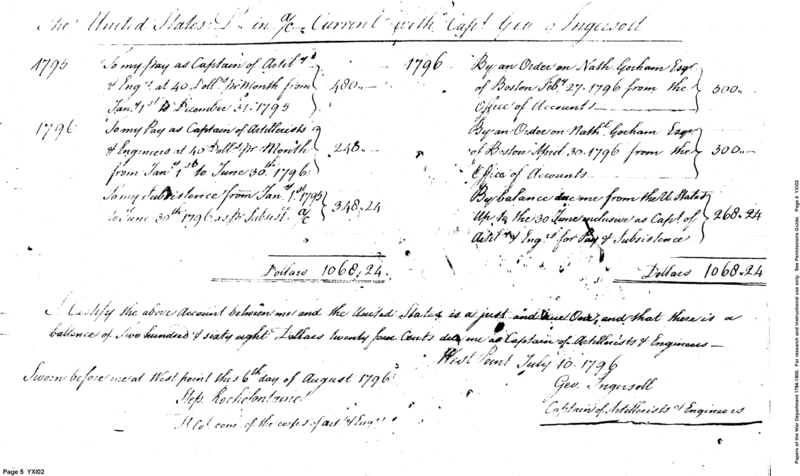 The United States Dr. in a/c Current with Capt. Geo. Ingersoll
1795 To my Pay as Captain of Artil. &
& Engrs. at 40 Dolls. pr Month from
Jany. 1st to December 31. 1795 480..
1796 To my Pay as Captain of Artillerists
& Engineers at 40 Dolls. pr Month
from Jany. 1st to June 30th 1796 248..
To my Subsistence from Jany. 1st 1795
to June 30th 1796 as pr Subsist. a/c 348..24
Dollars 1068..24
1796 By an Order on Nath. Gorham Esqr
of Boston Feby. 27. 1796 from the
Office of Accounts 500..
By an Order on Nathl. Gorham Esqr
of Boston April 30. 1796 from the
Office of Accounts 300..
By balance due me from the U. States
up to the 30 June inclusive as Capt. of
Artil. & Engrs. for Pay & Subsistence 268..24
Dollars 1068..24
I Certify the above Account between me and the United States is a just and true One, and that there is a
ballence of Two hundred & sixty eight Dollars twenty four Cents due me as Captain of Artillerists & Engineers —
West Point July 10. 1796
Geo. Ingersoll
Captain of Artillerists & Engineers
Sworn before me at West point this 6th day of August 1796
Step. Rochefontaine
Lt Col com. of the corps of art. & Engrs
Page 5 YXI02
Papers of the War Department 1784-1800. For research and instructional use only. See Permissions Guide. Page 4 YXI02